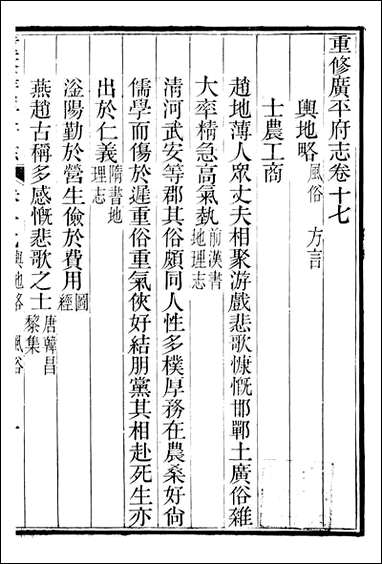 重修廣平府志卷十七
輿地略風俗 方言
士農工商
趙地薄人眾丈夫相聚游戲悲歌慷慨邯鄲土廣俗雜
大率精急高氣埶前漢書地理志
清河武安等郡其俗頗同人性多樸厚務在農桑好尙
儒學而傷於遲重俗重氣俠好結朋黨其相赴死生亦
出於仁義隋書地理志
滏陽勤於營生儉於費用圖經
燕趙古稱多感慨悲歌之士唐韓昌黎集
輿地略 風俗 一